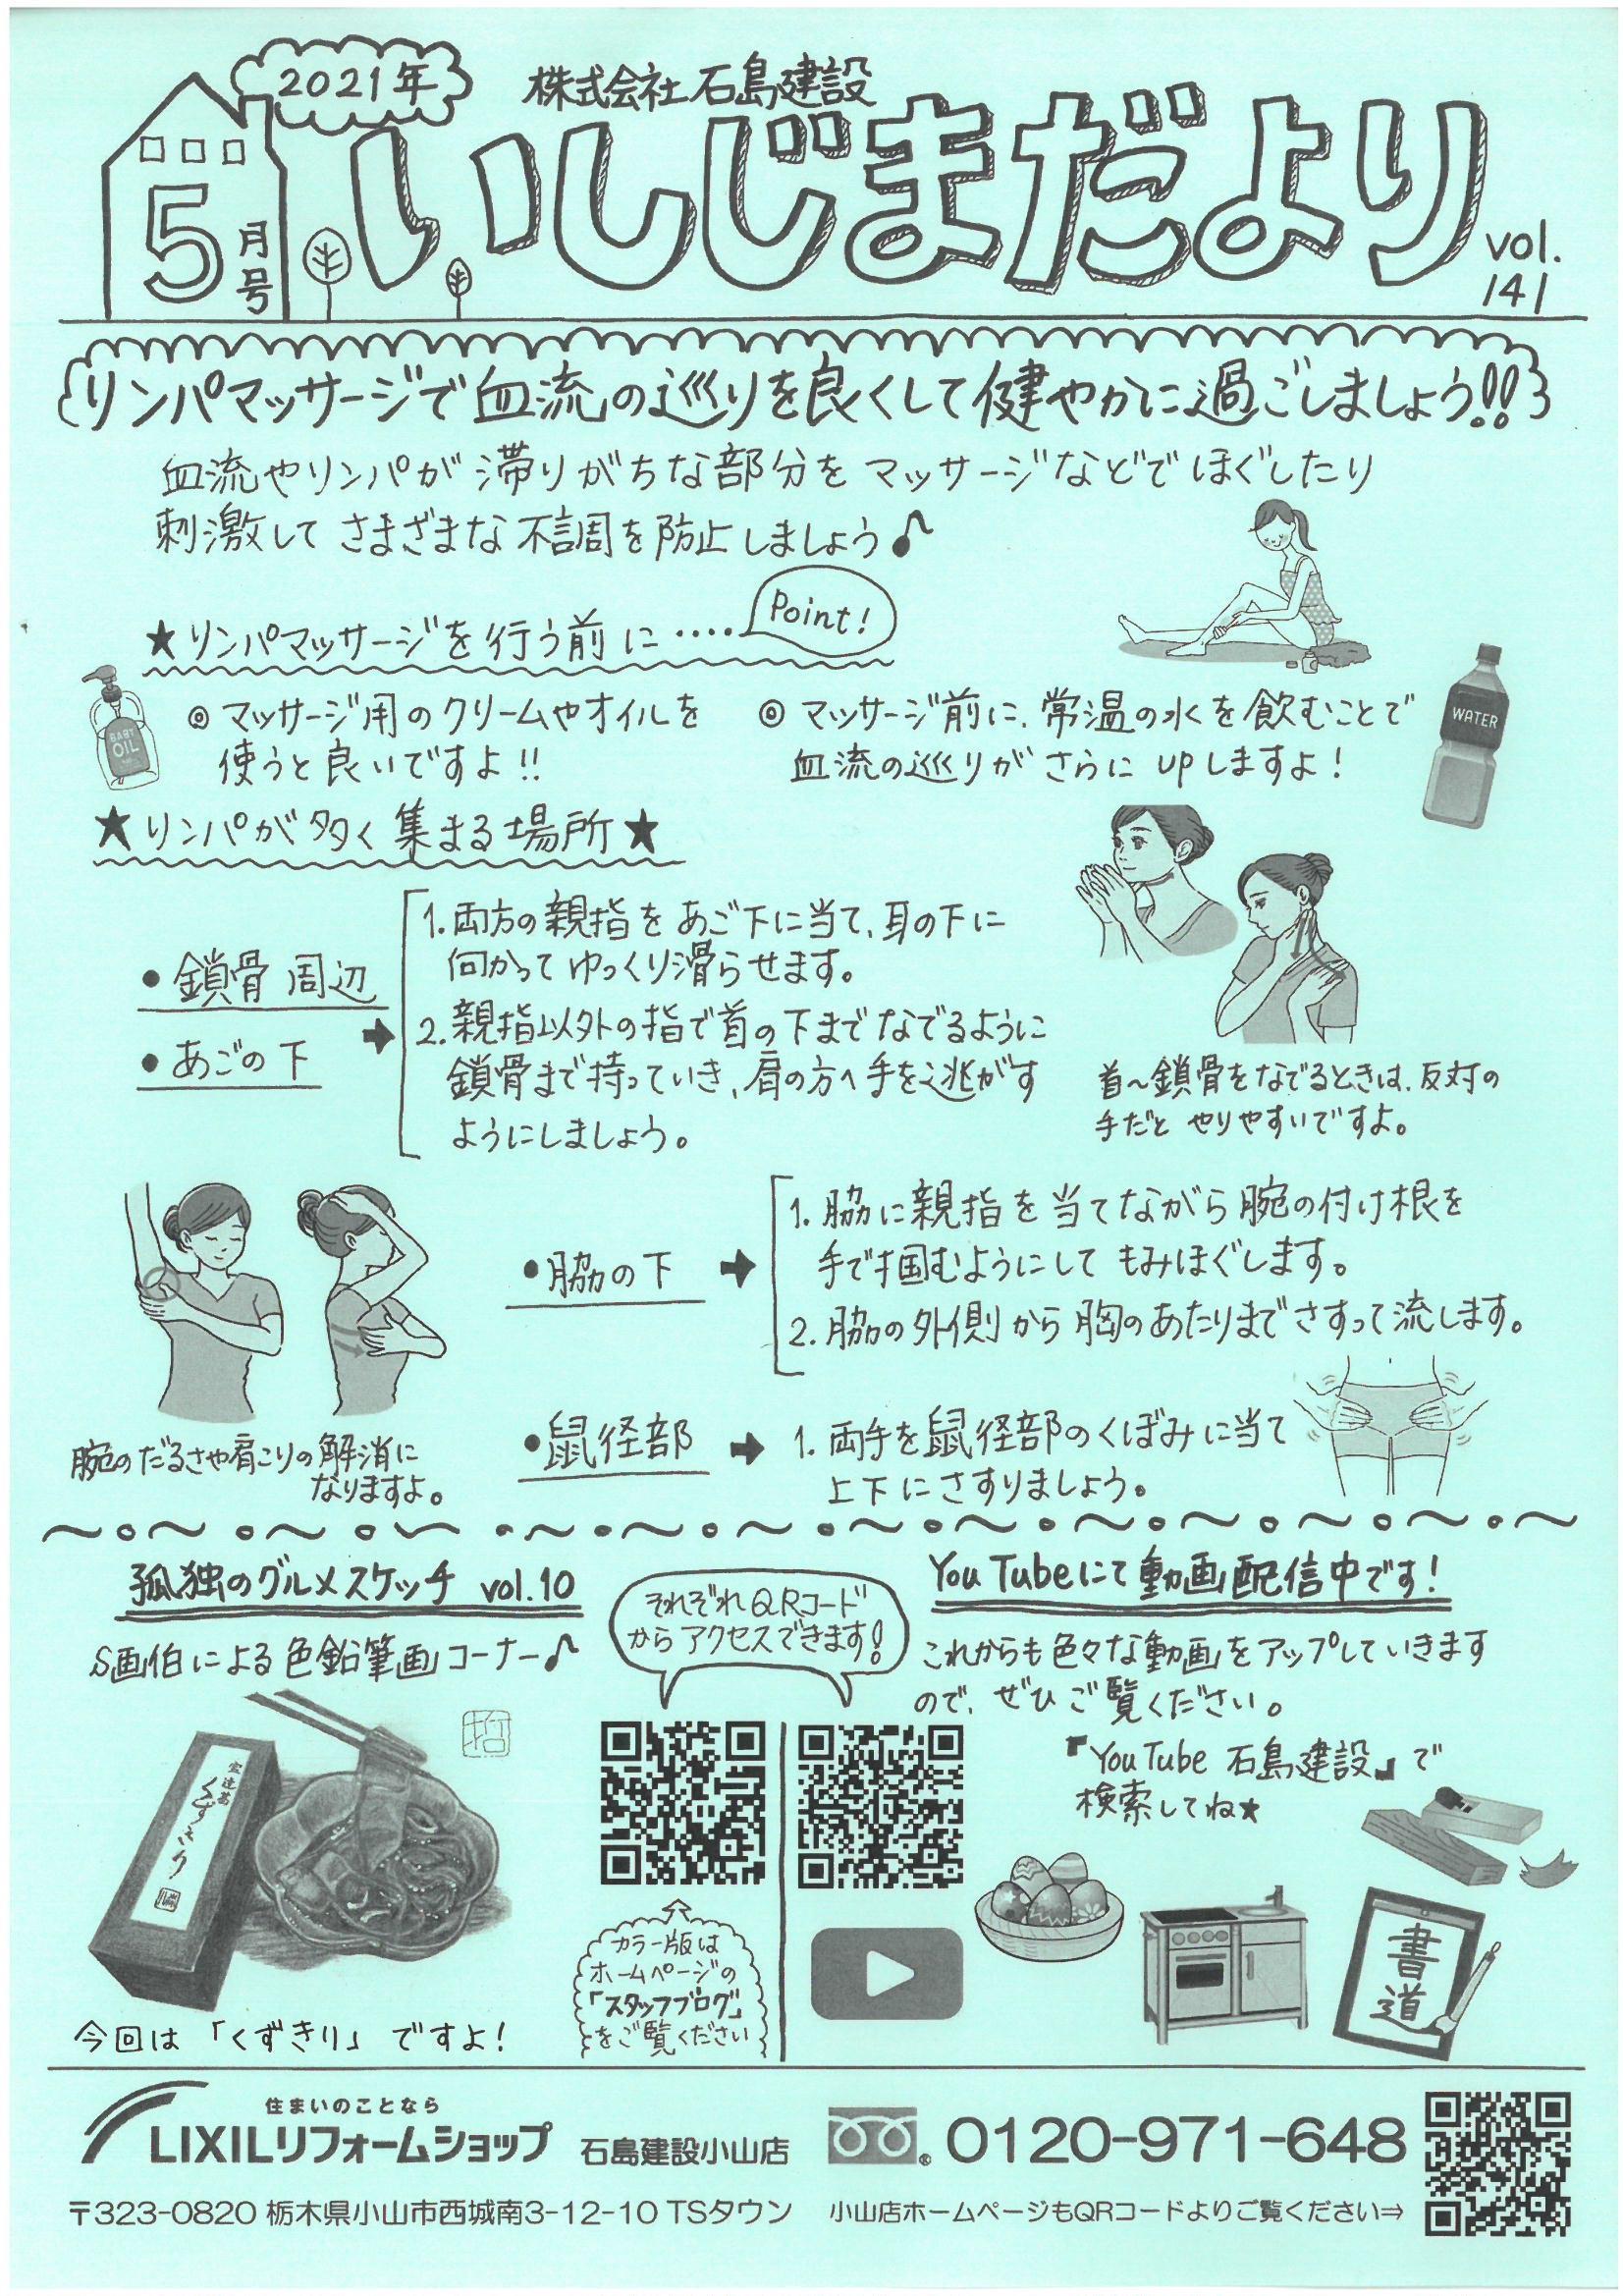 2021年
株式会社石島建設
5月号
いしじまだより
vol.
141
リンパマッサージで血流の巡りを良くして健やかに過ごしましょう!!
血流やリンパが滞りがちな部分をマッサージなどでほぐしたり
刺激してさまざまな不調を防止しましょう♪
★リンパマッサージを行う前に‥‥
Point!
BABY
OIL
◎マッサージ用のクリームやオイルを
使うと良いですよ!!
◎マッサージ前に、常温の水を飲むことで
血流の巡りがさらにupしますよ!
WATER
★リンパが多く集まる場所★
•鎖骨周辺
•あごの下
➡
1.両方の親指をあご下に当て、耳の下に
向かってゆっくり滑らせます。
2.親指以外の指で首の下までなでるように
鎖骨まで持っていき、肩の方へ手を逃がす
ようにしましょう。
首〜鎖骨をなでるときは、反対の
手だとやりやすいですよ。
•脇の下
➡
1.脇に親指を当てながら腕の付け根を
手で掴むようにしてもみほぐします。
2.脇の外側から胸のあたりまでさすって流します。
腕のだるさや肩こりの解消に
なりますよ。
•鼠径部
➡
1.両手を鼠径部のくぼみに当て
上下にさすりましょう。
孤独のグルメスケッチ vol.10
S画伯による色鉛筆画コーナー♪
それぞれQRコード
からアクセスできます!
YouTubeにて動画配信中です!
これからも色々な動画をアップしていきます
ので、ぜひご覧ください。
『YouTube 石島建設』で
検索してね★
宝達葛
くずきり
カラー版は
ホームページの
「スタッフブログ」
をご覧ください
書道
今回は「くずきり」ですよ!
住まいのことなら
LIXILリフォームショップ 石島建設小山店
0120-971-648
〒323-0820 栃木県小山市西城南3-12-10 TSタウン
小山店ホームページもQRコードよりご覧ください⇒